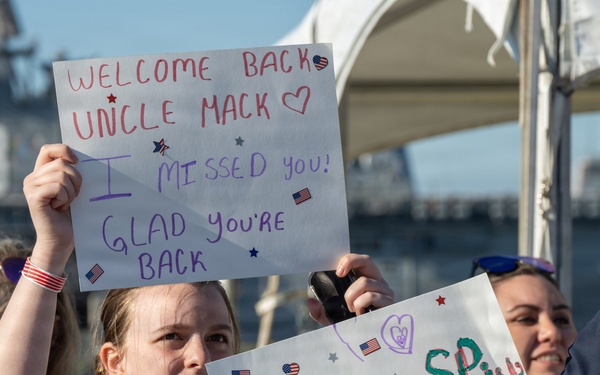 WELCOME BACK
UNCLE MACK
I MISSED YOU!
GLAD YOU'RE
BACK